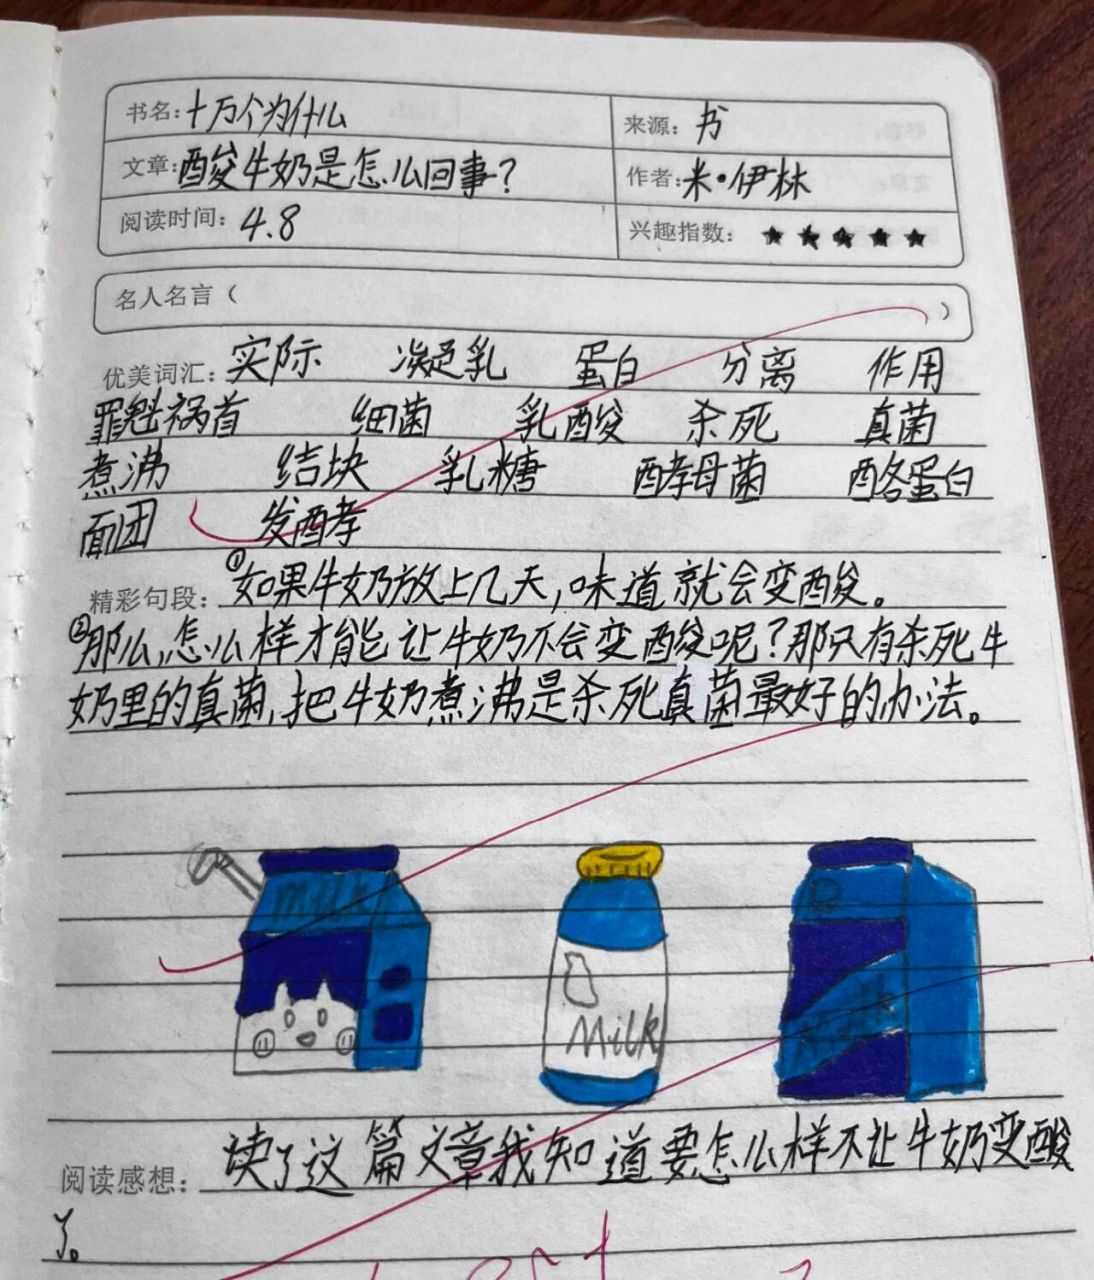 书名:十万个为什么 来源:书
文章:酸牛奶是怎么回事? 作者:米·伊林
阅读时间:4.8 兴趣指数:★★★★★
名人名言( )
优美词汇:实际 凝乳 蛋白 分离 作用
罪魁祸首 细菌 乳酸 杀死 真菌
煮沸 结块 乳糖 酵母菌 酪蛋白
面团 发酵
精彩句段:①如果牛奶放上几天,味道就会变酸。
②那么,怎么样才能让牛奶不会变酸呢?那只有杀死牛
奶里的真菌,把牛奶煮沸是杀死真菌最好的办法。
milk
Milk
阅读感想:读了这篇文章我知道要怎么样不让牛奶变酸
了。